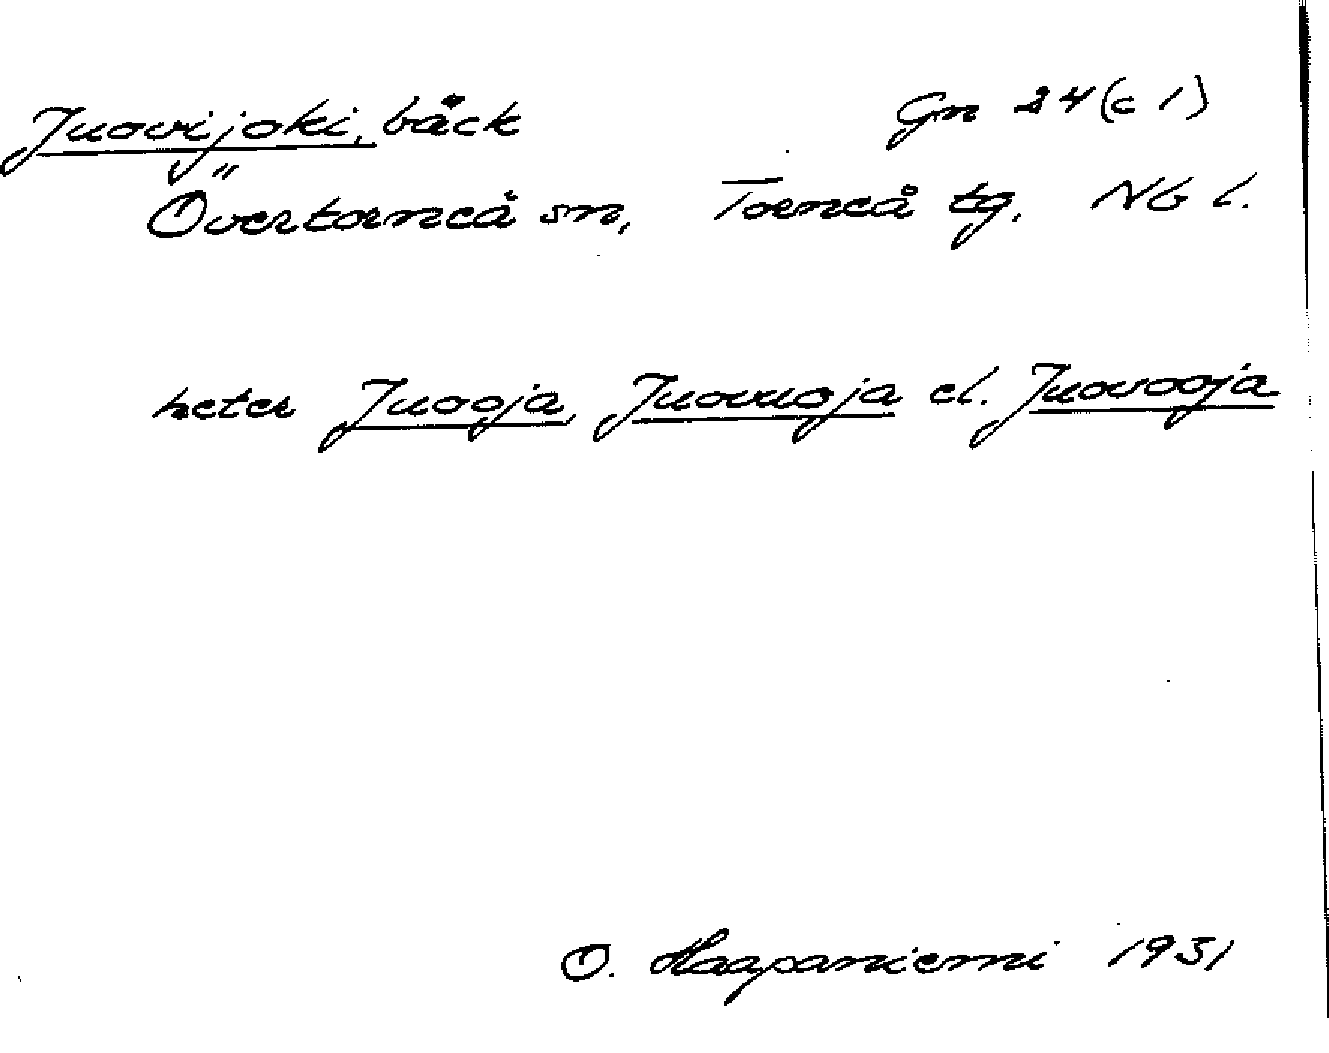 Juovijoki, bäck Gn 24 (c 1)
Övertorneå sn, Torneå tg. Nb l.
heter Juooja, Juovuoja el. Juovooja
O. Haapaniemi 1931